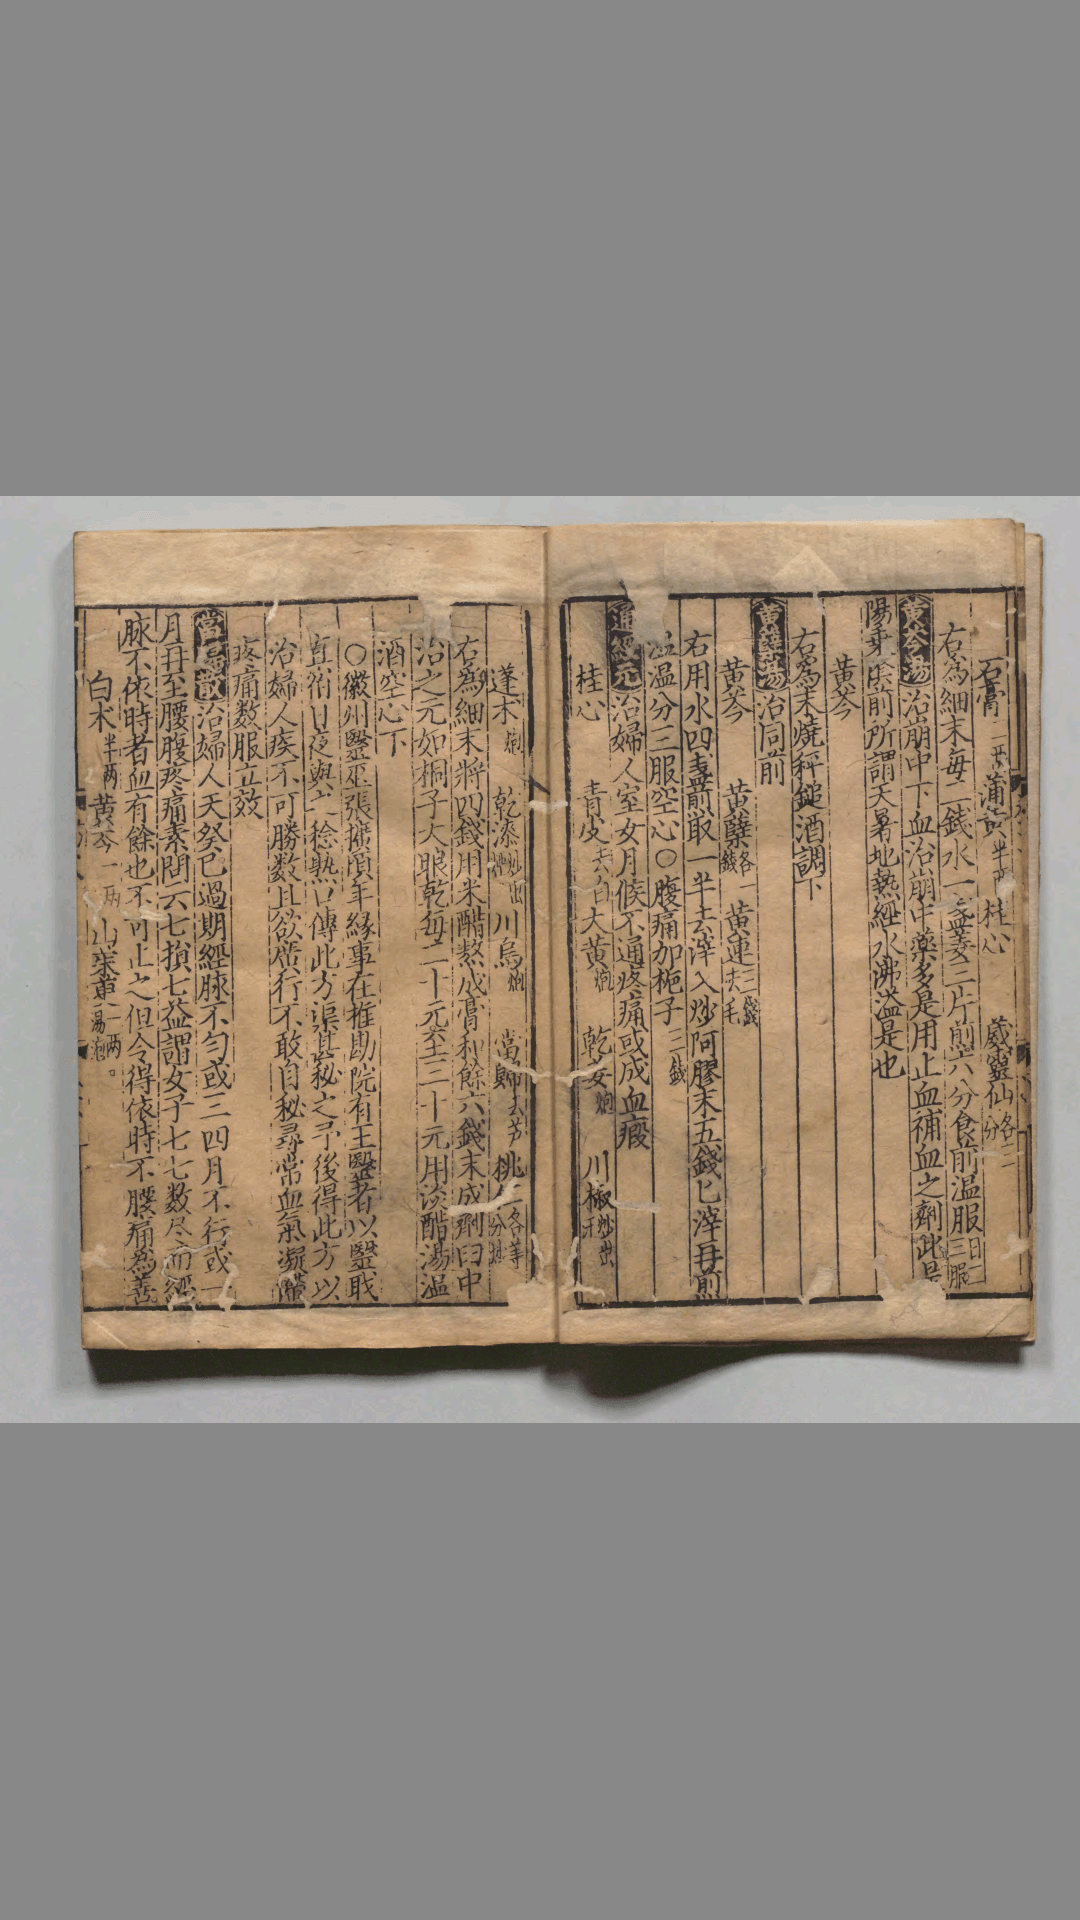 石膏一两蒲黃半两 桂心 葳靈仙各二分
右爲細末每二錢水一盞姜三片煎六分食前溫服日二三服
黃芩湯治崩中下血治崩中藥多是用止血補血之劑此是
陽乘陰前所謂天暑地熱經水沸溢是也
黃芩
右爲末燒秤鎚酒調下
黃蘗湯治同前
黃芩 黃蘗各一錢 黃連三錢去毛
右用水四盞煎取一半去滓入炒阿膠末五錢匕滓再煎
溫溫分三服空心〇腹痛加栀子三錢
通經元治婦人室女月候不通疼痛或成血瘕
桂心 青皮去白大黃炮 乾姜炮 川椒炒出
蓬术炮 乾漆炒出川烏炮 當歸去芦 桃仁各等分炒
右爲細末將四錢用米醋熬成膏和餘六錢末成劑臼中
治之元如桐子大眼乾每二十元至三十元用淡醋湯溫
酒空心下
〇徽州醫巫張擴頃年緣事在推勘院有王醫者以醫職
直宿日夜與之稔熟口傳此方渠甚秘之予後得此方以
治婦人疾不可勝数且欲廣行不敢自秘尋常血氣凝滯
疼痛数服立效
當歸散治婦人天癸已過期經脉不匀或三四月不行或一
月再至腰腹疼痛素問云七損七益謂女子七七数尽而經
脉不依時者血有餘也不可止之但令得依時不腰痛爲善
白术半两黃芩一两山茱萸湯泡一两